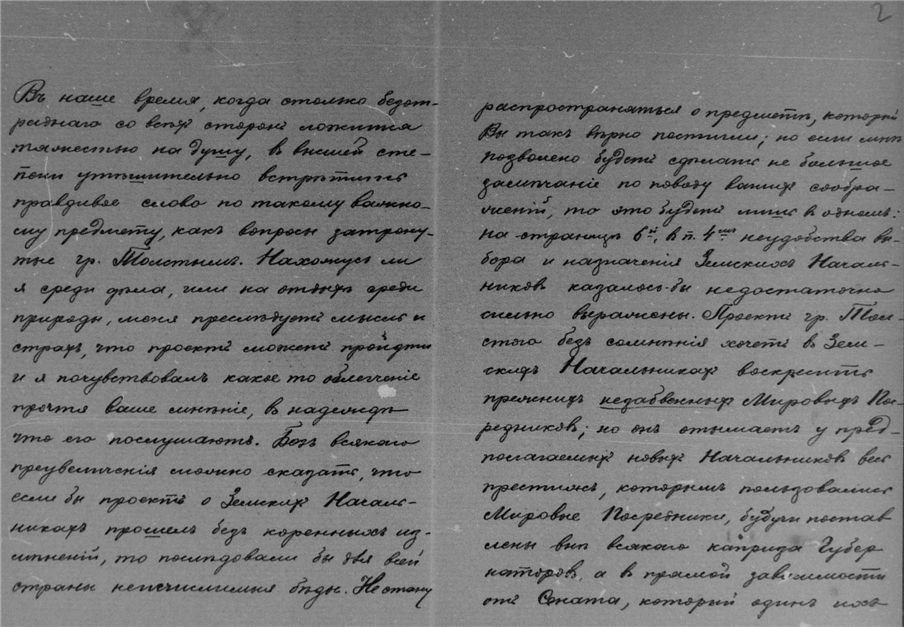 2
Въ наше время, когда столько безот-
раднаго со всѣхъ сторонъ ложится
тяжестью на душу, въ высшей сте-
пени утѣшительно встрѣтить
правдивое слово по такому важно-
му предмету, какъ вопросы затрону-
тые гр. Толстымъ. Нахожусь ли
я среди дѣла, или на отдыхѣ среди
природы, меня преслѣдуетъ мысль и
страхъ, что проектъ можетъ пройдти
и я почувствовалъ какое то облегченіе
прочтя Ваше мнѣніе, въ надеждѣ
что его послушаютъ. Безъ всякаго
преувеличенія можно сказать, что
если бы проектъ о Земскихъ Началь-
никахъ прошелъ безъ коренныхъ из-
мѣненій, то послѣдовали бы для всей
страны неисчислимыя бѣды. Не стану
распространяться о предметѣ, который
Вы такъ вѣрно постигли; но если мнѣ
позволено будетъ сдѣлать не большое
замѣчаніе по поводу вашихъ сообра-
женій, то это будетъ лишь въ одномъ:
на страницѣ 6й, въ п. 4мъ неудобства вы-
бора и назначенія Земскихъ Началь-
никовъ казалось-бы недостаточно
сильно выражены. Проектъ гр. Тол-
стого безъ сомнѣнія хочетъ въ Зем-
скихъ Начальникахъ воскресить
прежнихъ незабвенныхъ Мировыхъ Пос-
редниковъ; но онъ отымаетъ у пред-
полагаемыхъ новыхъ Начальниковъ весь
престижъ, которымъ пользовались
Мировые Посредники, будучи постав
лены внѣ всякаго каприза Губер
наторовъ, а въ прямой зависимости
отъ Сената, который одинъ ихъ